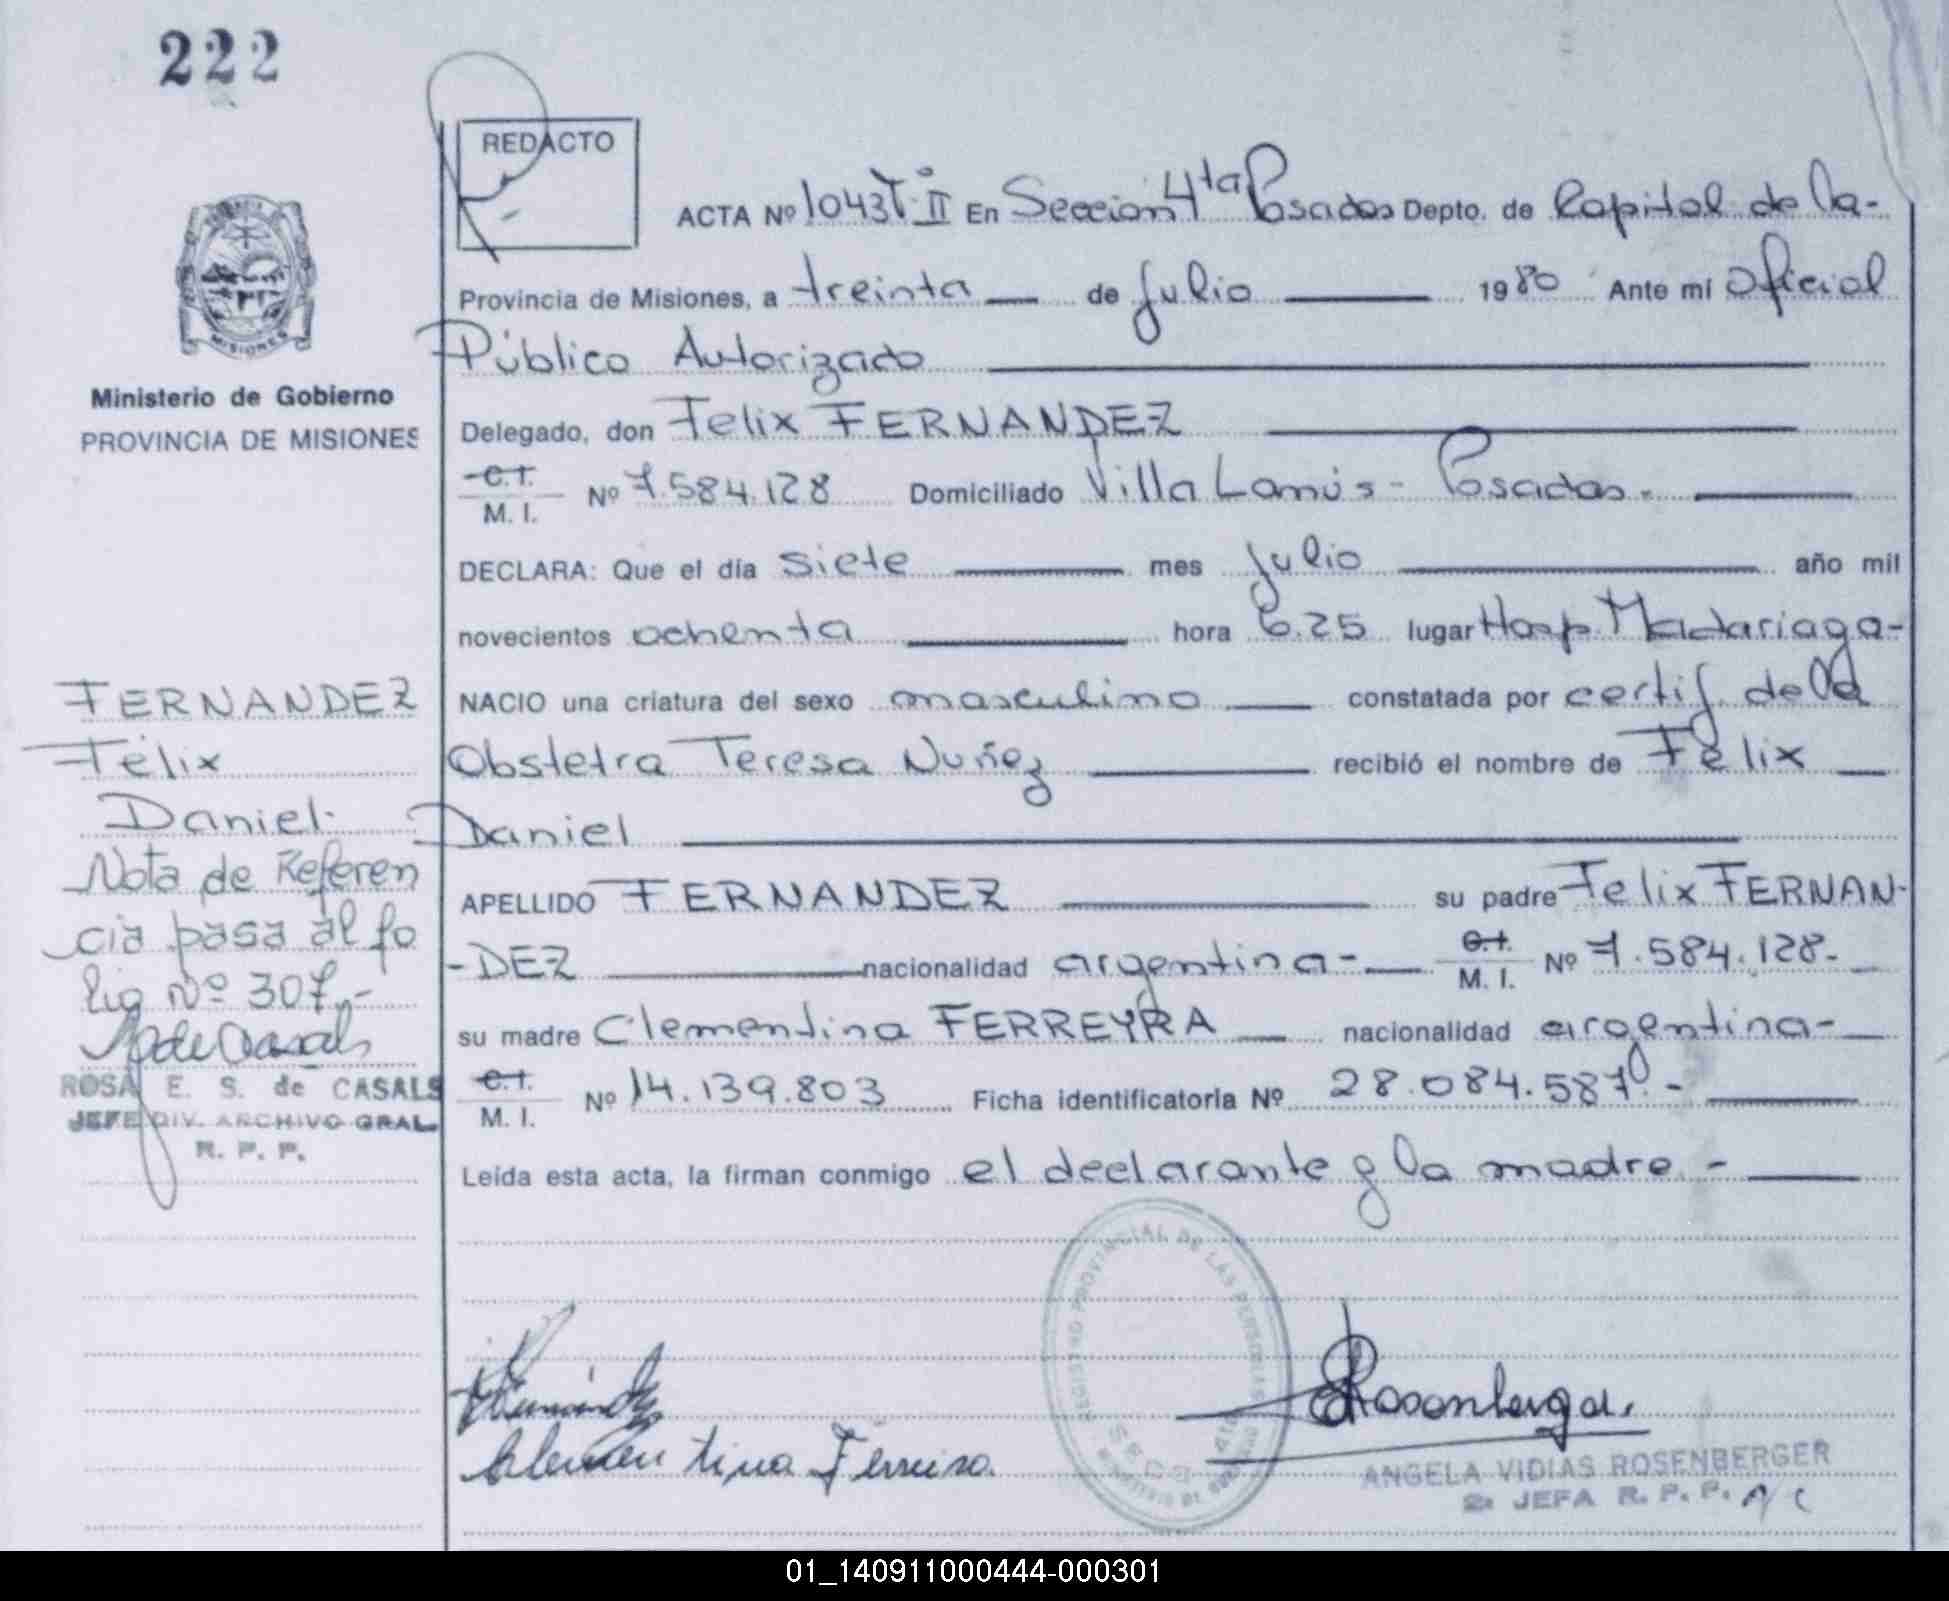 222
REDACTO
ACTA Nº 1043 Tº II En Sección 4ta Posadas Depto. de Capital de la-
Provincia de Misiones, a treinta de julio 1980 Ante mí Oficial
Público Autorizado
Delegado, don Felix FERNANDEZ
C.I. / M. I. Nº 7.584.128 Domiciliado Villa Lanús - Posadas.
DECLARA: Que el día siete mes julio año mil
novecientos ochenta hora 6.25 lugar Hosp. Madariaga-
NACIO una criatura del sexo masculino constatada por certif. de la
Obstetra Teresa Nuñez recibió el nombre de Félix
Daniel
APELLIDO FERNANDEZ su padre Felix FERNAN-
-DEZ nacionalidad argentina- C.I. / M. I. Nº 7.584.128-
su madre Clementina FERREYRA nacionalidad argentina-
C.I. / M. I. Nº 14.139.803 Ficha identificatoria Nº 28.084.587.-
Leída esta acta, la firman conmigo el declarante y la madre.-
MISIONES
Ministerio de Gobierno
PROVINCIA DE MISIONES
FERNANDEZ
Félix
Daniel.
Nota de Referen
cia pasa al fo
lio Nº 307.-
ROSA E. S. de CASALS
JEFE DIV. ARCHIVO GRAL.
R. P. P.
REGISTRO PROVINCIAL DE LAS PERSONAS
Clementina Ferreira
Rosenberger
ANGELA VIDIAS ROSENBERGER
2ª JEFA R. P. P. A/C
01_140911000444-000301